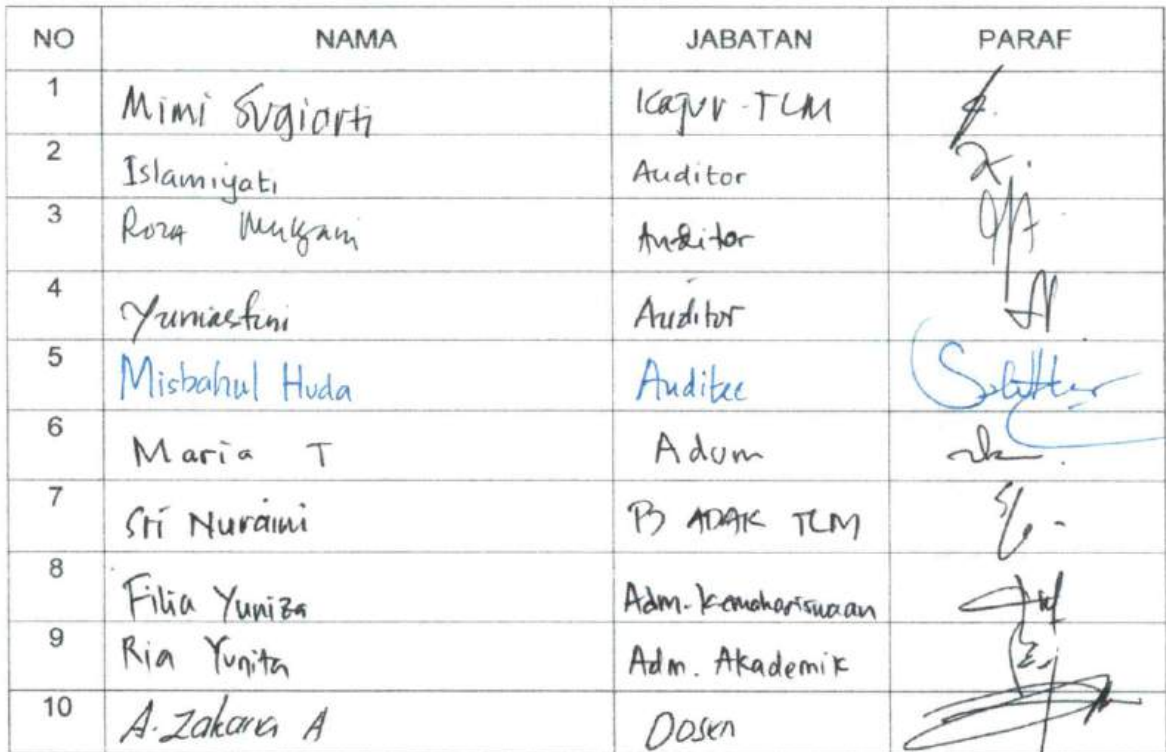 NO NAMA JABATAN PARAF
1 Mimi Sugiarti Kajur-TLM
2 Islamiyati Auditor
3 Roza Mulyani Auditor
4 Yuniastini Auditor
5 Misbahul Huda Auditee
6 Maria T Adum
7 Sri Nuraini PJ ADAK TLM
8 Filia Yuniza Adm. Kemahasiswaan
9 Ria Yunita Adm. Akademik
10 A. Zakaria A Dosen